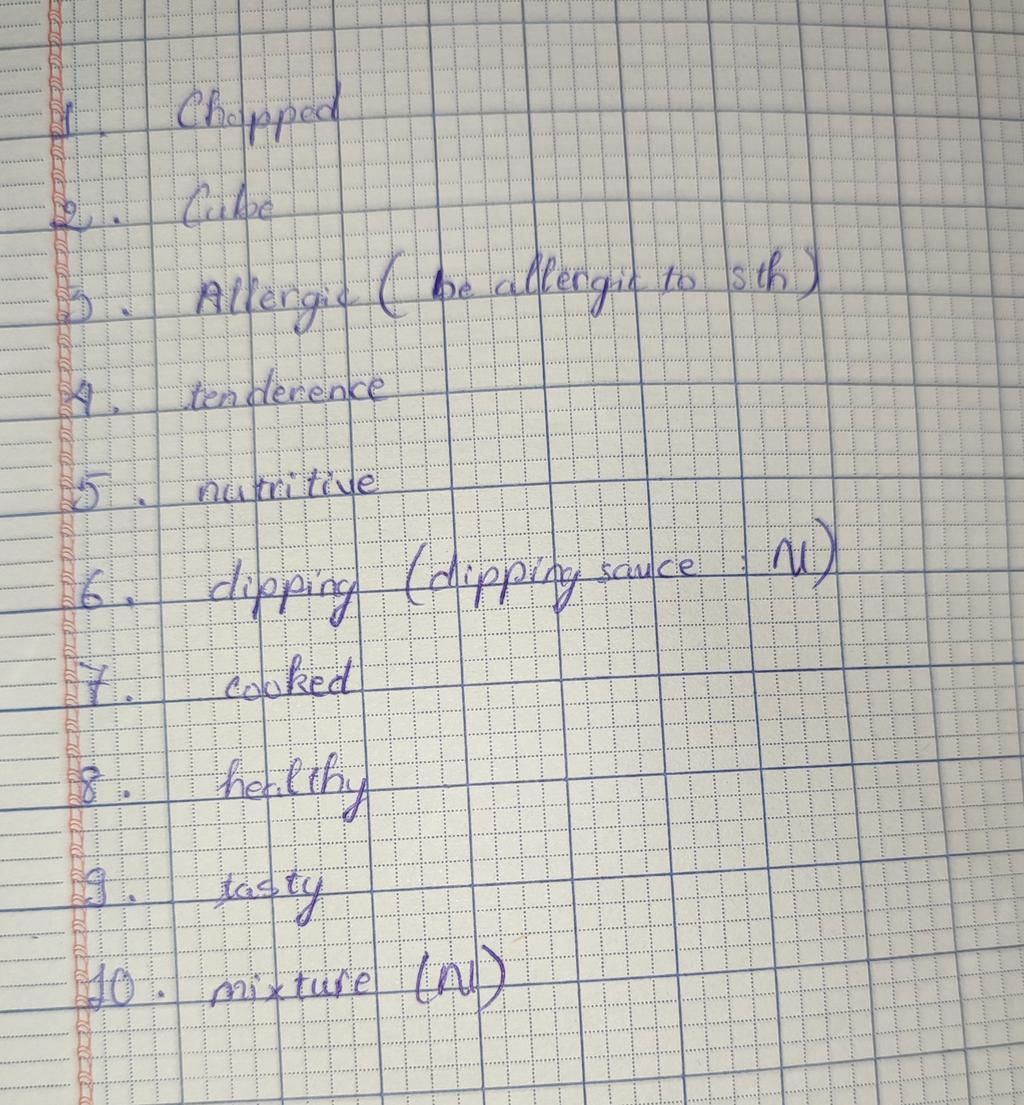 1. Chopped
2. Cube
3. Allergic ( be allergic to sth )
4. tenderence
5. nutritive
6. dipping ( dipping sauce : N )
7. cooked
8. healthy
9. tasty
10. mixture (N)